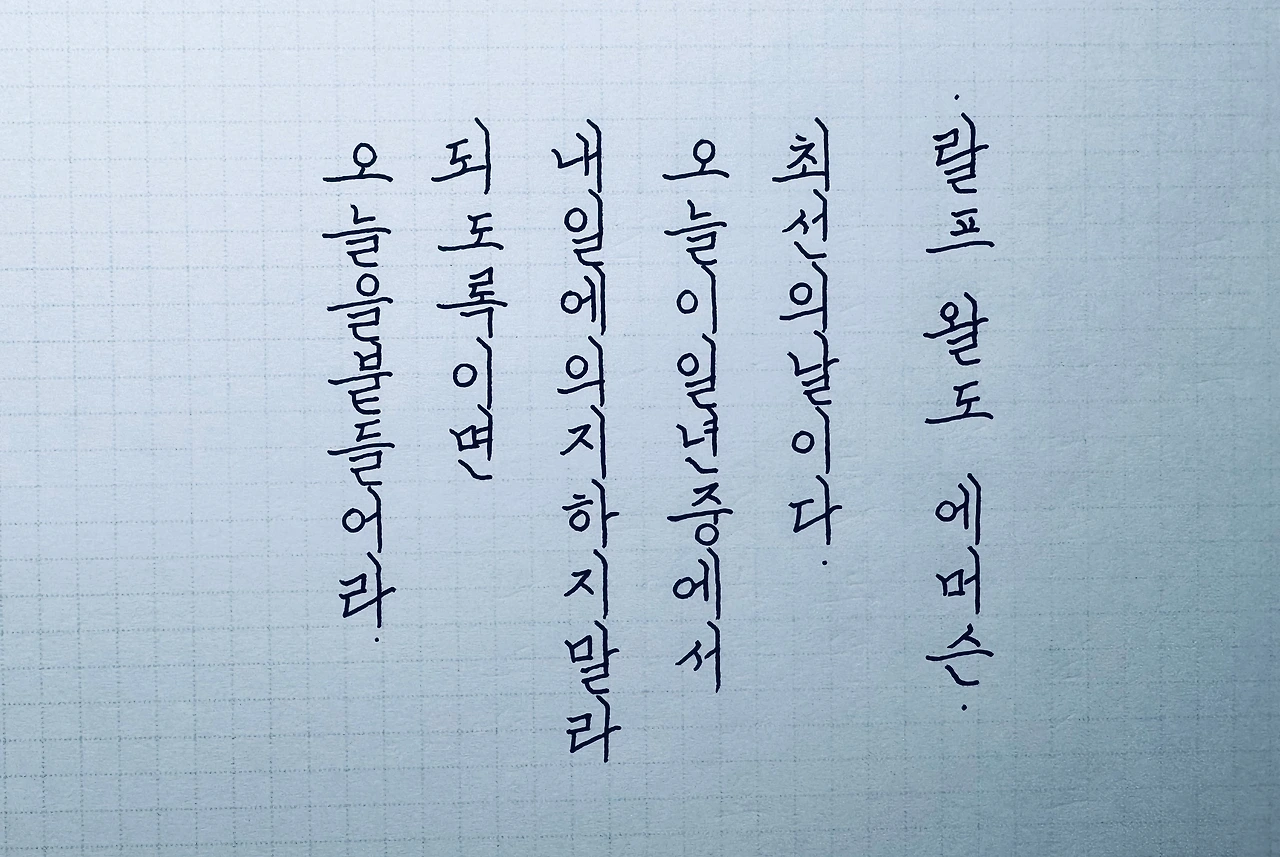 오늘을붙들어라.
되도록이면
내일에의지하지말라
오늘이일년중에서
최선의날이다.
·랄프 왈도 에머슨·